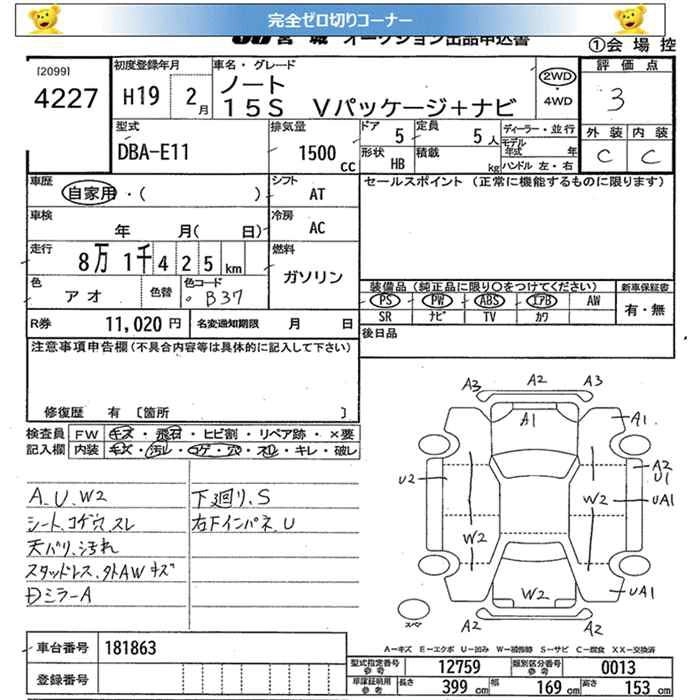 完全ゼロ切りコーナー
宮城 オークション出品申込書
①会場控
[2099]
4227
初度登録年月
H19 2月
車名・グレード
ノート
15S Vパッケージ+ナビ
2WD
・
4WD
評価点
3
外装 内装
C C
型式
DBA-E11
排気量
1500 cc
ドア 5
定員 5人
形状 HB
積載 kg
ディーラー・並行
モデル年式 年
ハンドル 左・右
車歴
自家用・( )
シフト
AT
セールスポイント (正常に機能するものに限ります)
車検
年 月( 日)
冷房
AC
走行
8万 1千 4 2 5 km
燃料
ガソリン
色
アオ
色替
色コード
B37
装備品(純正品に限り○をつけてください)
PS PW ABS エアB AW
SR ナビ TV カワ
新車保証書
有・無
R券 11,020 円
名変通知期限 月 日
後日品
注意事項申告欄(不具合内容等は具体的に記入して下さい)
修復歴 有 [箇所 ]
検査員記入欄
FW キズ・飛石・ヒビ割・リペア跡・×要
内装 キズ・汚レ・コゲ・穴・スレ・キレ・破レ
A.U.W2
シート、コゲ穴、スレ
天バリ、汚れ
スタッドレス、外AWキズ
Dミラー A
下廻り、S
右Fインパネ、U
A3 A2 A3
A1 A1
U2
A2
U1
W2 UA1
W2
W2 UA1
A2 A2
スペア
A-キズ E-エクボ U-凹み W-補修跡 S-サビ C-腐食 XX-交換済
車台番号 181863
登録番号
型式指定番号 参考 12759
類別区分番号 参考 0013
車庫証明用 参考 長さ 399 cm 幅 169 cm 高さ 153 cm